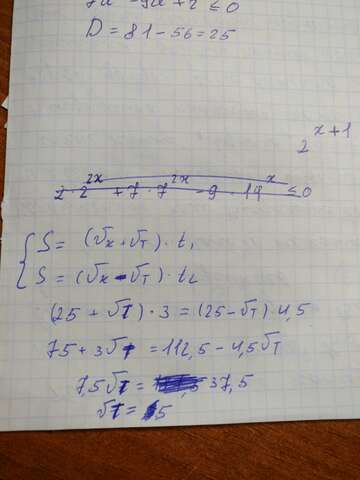 7u² - 9u + 2 ≤ 0
D = 81 - 56 = 25
2^{x+1}
2 · 2^{2x} + 7 · 7^{2x} - 9 · 14^{x} ≤ 0
S = (Vx + Vт) · t₁
S = (Vx - Vт) · t₂
(25 + Vт) · 3 = (25 - Vт) 4,5
75 + 3Vт = 112,5 - 4,5Vт
7,5Vт = 37,5
Vт = 5